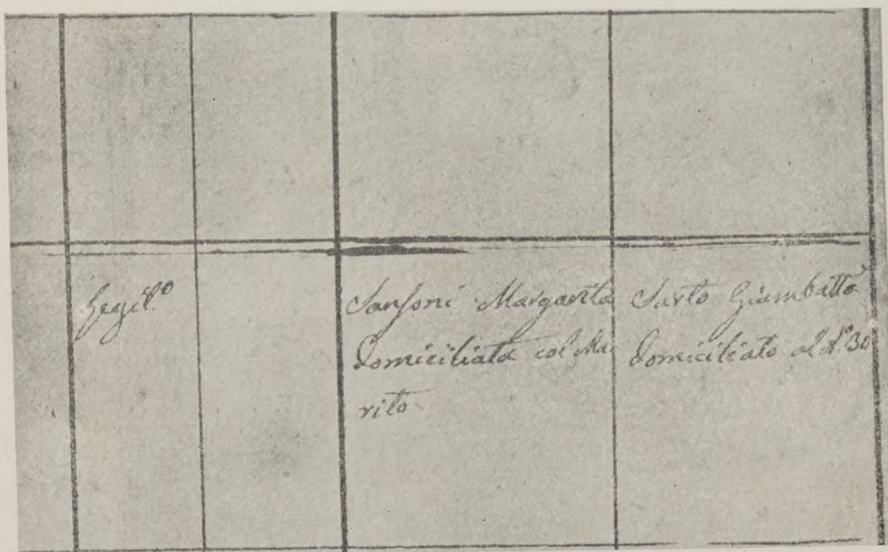 Legit.º
Sanſoni Margarita
domiciliata col Ma-
rito
Sarto Giambattª
domiciliato al Nº 30